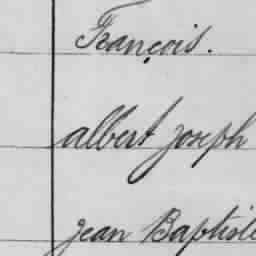 François.
albert joseph
jean Baptiste